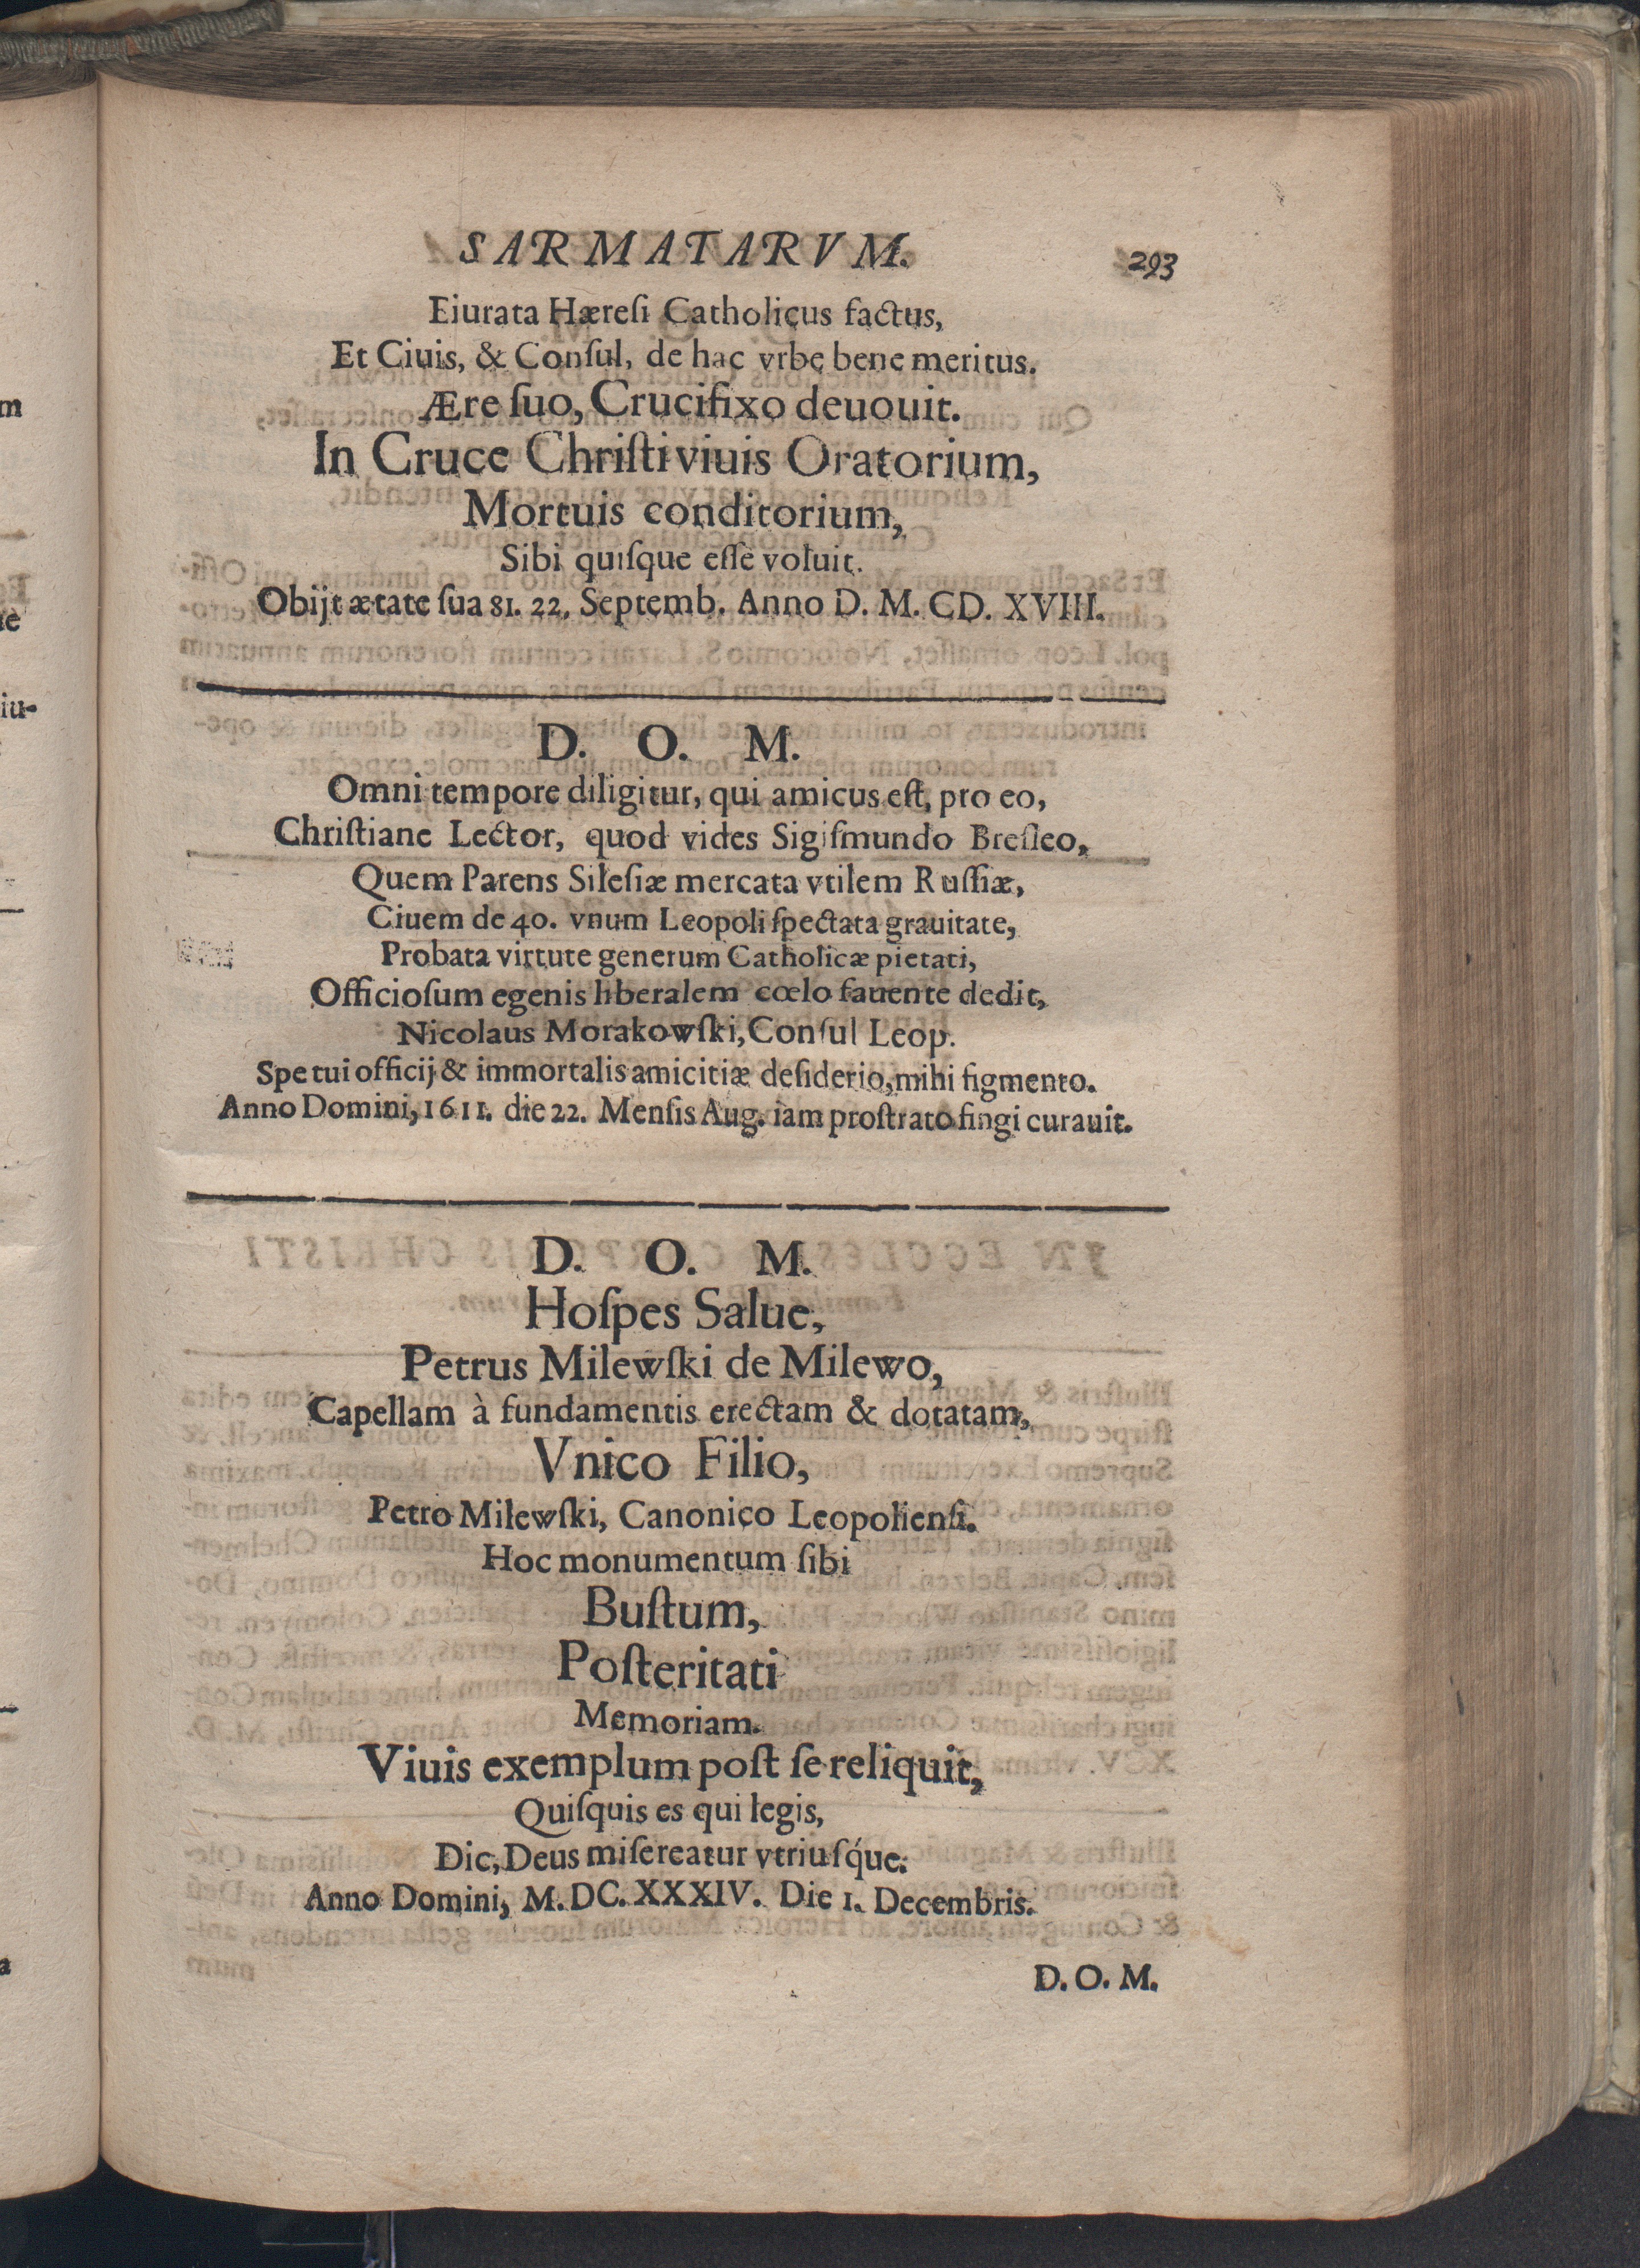 SARMATARVM. 293
Eiurata Hæreſi Catholicus factus,
Et Ciuis, & Conſul, de hac vrbe bene meritus.
Ære ſuo, Crucifixo deuouit.
In Cruce Chriſti viuis Oratorium,
Mortuis conditorium,
Sibi quiſque eſſe voluit.
Obijt ætate ſua 81. 22. Septemb. Anno D. M. CD. XVIII.
D. O. M.
Omni tempore diligitur, qui amicus eſt, pro eo,
Chriſtiane Lector, quod vides Sigiſmundo Breſleo,
Quem Parens Sileſiæ mercata vtilem Ruſſiæ,
Ciuem de 40. vnum Leopoli ſpectata grauitate,
Probata virtute generum Catholicæ pietati,
Officioſum egenis liberalem cœlo fauente dedit,
Nicolaus Morakowſki, Conſul Leop.
Spe tui officij & immortalis amicitiæ deſiderio, mihi figmento.
Anno Domini, 1611. die 22. Menſis Aug. iam proſtrato fingi curauit.
D. O. M.
Hoſpes Salue,
Petrus Milewſki de Milewo,
Capellam à fundamentis erectam & dotatam,
Vnico Filio,
Petro Milewſki, Canonico Leopolienſi.
Hoc monumentum ſibi
Buſtum,
Poſteritati
Memoriam.
Viuis exemplum poſt ſe reliquit,
Quiſquis es qui legis,
Dic, Deus miſereatur vtriuſq́ue.
Anno Domini, M. DC. XXXIV. Die 1. Decembris.
D. O. M.